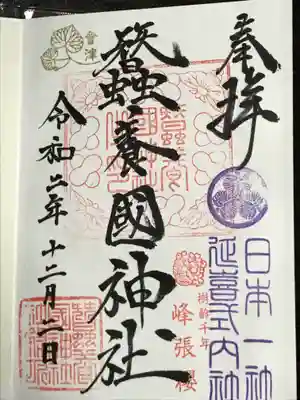 奉拝
日本一社
延喜式内社
樹齢千年
峰張櫻
蠶養國神社
會津
令和二年十二月二日